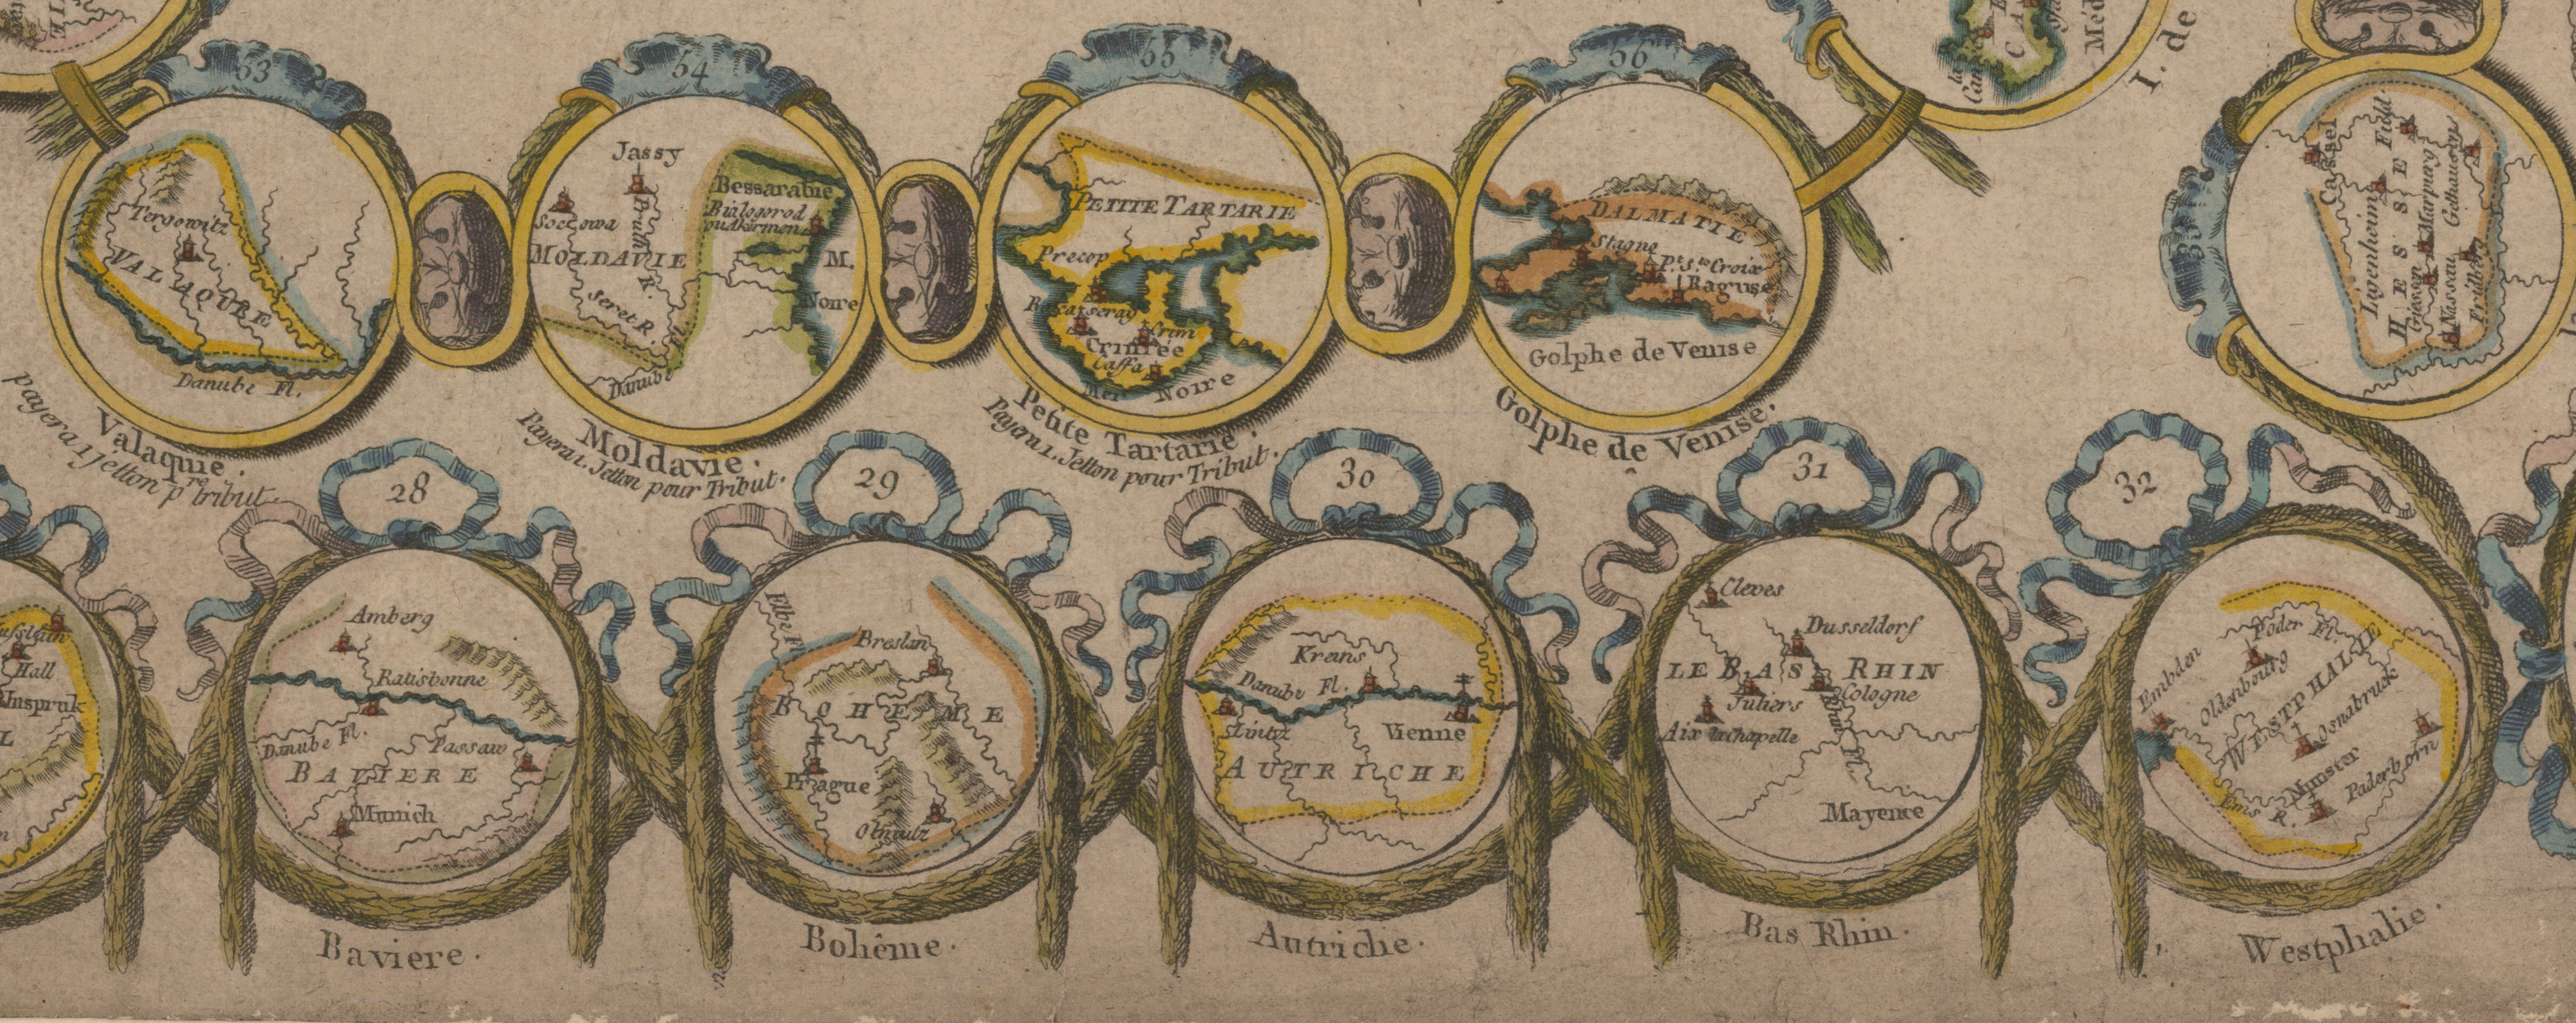 53
Tergowitz
VALAQUIE
Danube Fl.
Valaquie.
payera 1 jetton pre tribut.
54
Jassy
Soczowa
Pruth R.
MOLDAVIE
Seret R.
Danube Fl.
Bessarabie
Bialogorod
ou Akerman
M.
Noire
Moldavie.
Payera 1. Jetton pour Tribut.
55
PETITE TARTARIE
Precop
Crim
Crimée
Caffa
Mer Noire
Petite Tartarie.
Payera 1. Jetton pour Tribut.
56
DALMATIE
Stagno
Pt. Ste. Croix
Raguse
Golphe de Venise
Golphe de Venise.
I. de
Méd
33
Cassel
Fuld
HESSE
Marpurg
Gelhausen
Giessen
Nassau
Hall
Inspruk
28
Amberg
Ratisbonne
Danube Fl.
Passaw
BAVIERE
Munich
Baviere.
29
Elbe Fl.
Breslau
BOHEME
Prague
Olmutz
Bohême.
30
Krems
Danube Fl.
Lintz
Vienne
AUTRICHE
Autriche.
31
Cleves
Dusseldorf
LE BAS RHIN
Juliers
Cologne
Aix la chapelle
Rhin Fl.
Mayence
Bas Rhin.
32
Embden
Oldenbourg
WESTPHALIE
Osnabruck
Munster
Paderborn
Ems R.
Westphalie.